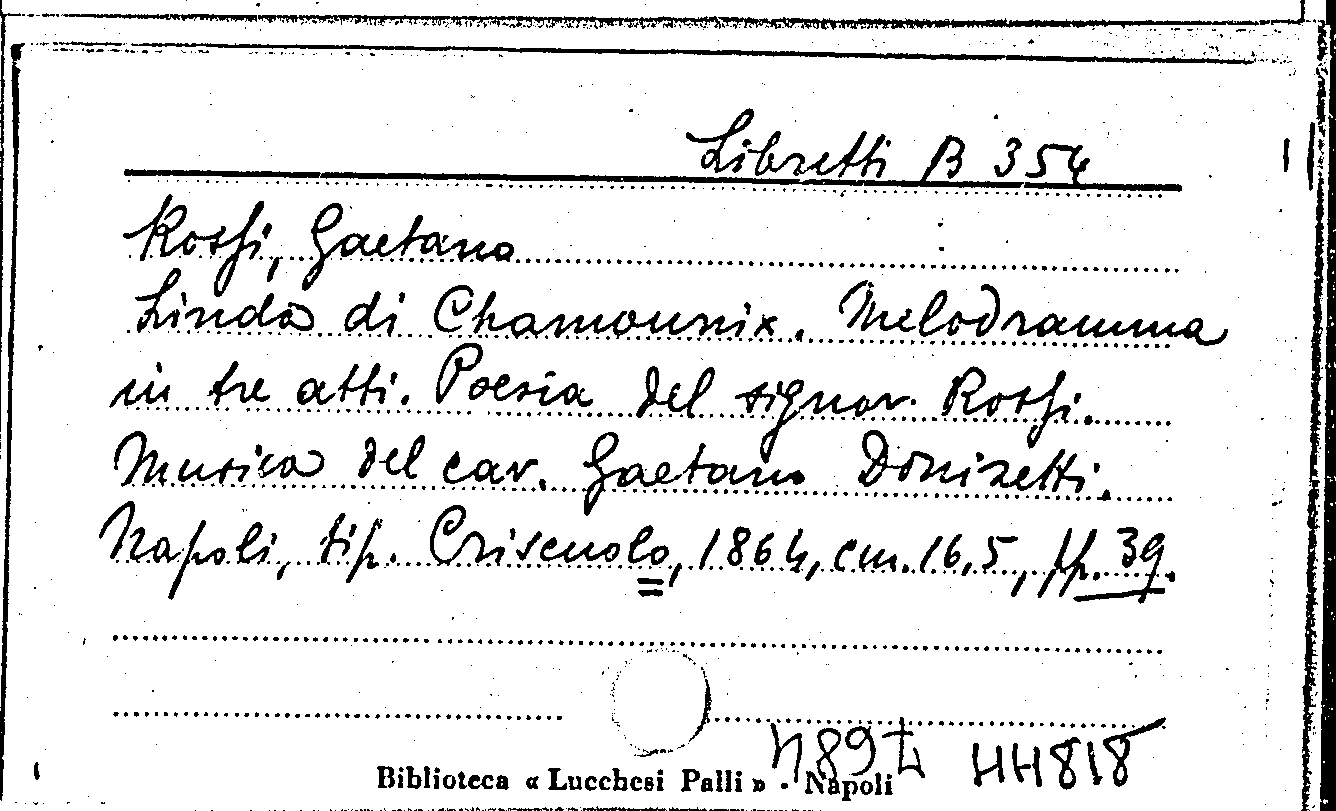 Libretti B 354
Rossi, Gaetano
Linda di Chamounix. Melodramma
in tre atti. Poesia del signor Rossi.
Musica del cav. Gaetano Donizetti.
Napoli, tip. Criscuolo, 1864, cm. 16,5, pp. 39.
HH818
Biblioteca « Lucchesi Palli » - Napoli